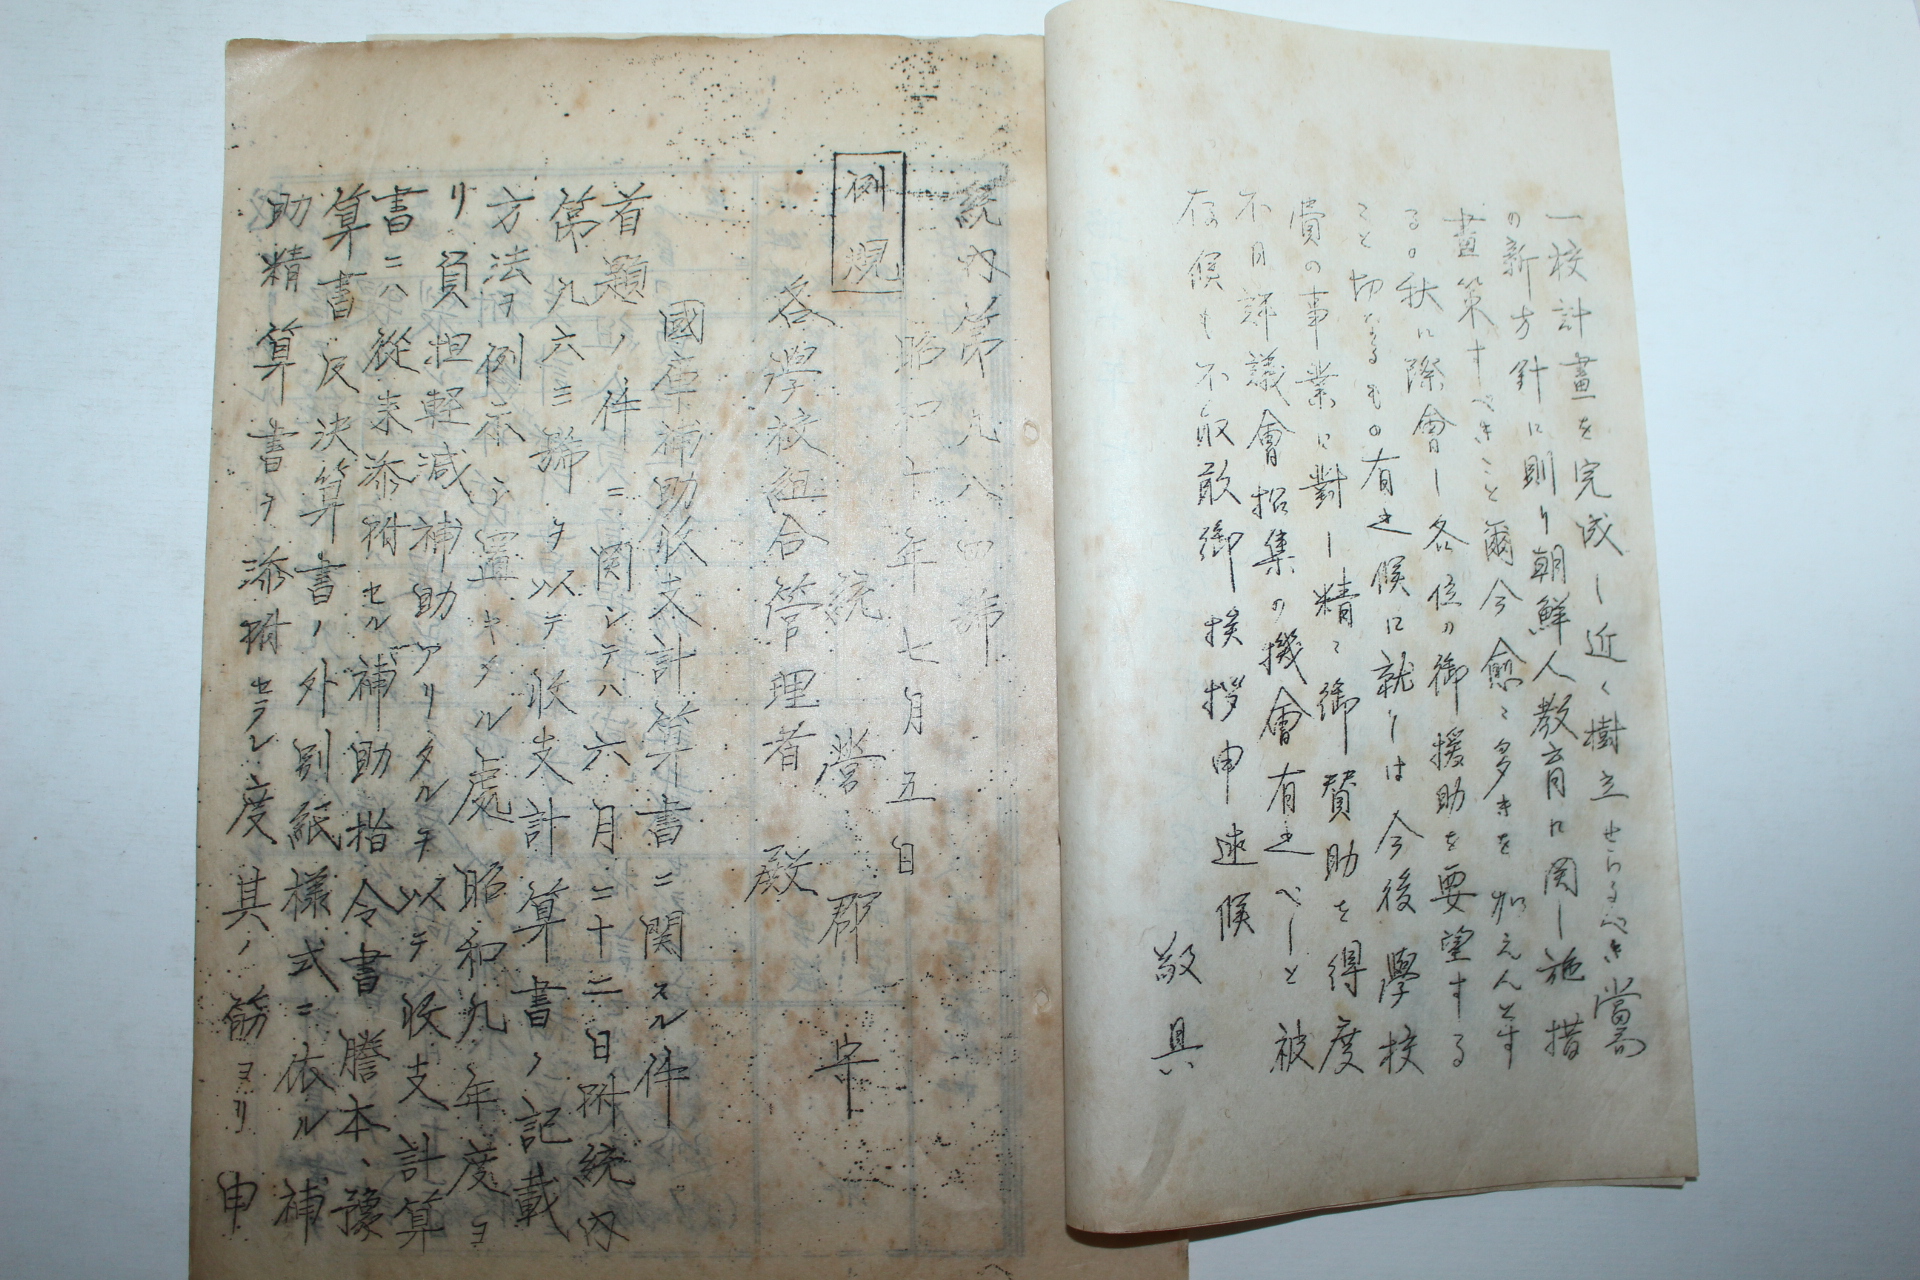 一校計畫を完成し近く樹立せらるべき當局
の新方針に則り朝鮮人教育に関し施措
畫策すべきこと爾今愈々多きを加えんとす
るの秋に際會し各位の御援助を要望する
こと切なるもの有之候に就ては今後學校
費の事業に對し精々御賛助を得度
不日評議會招集の機會有之べしと被
存候も不取敢御挨拶申述候
敬具
統内第九八四號
昭和十年七月五日
例規
統營郡守
各學校組合管理者殿
國庫補助收支計算書ニ関スル件
首題ノ件ニ関シテハ六月二十二日附統内
第九六三號ヲ以テ收支計算書ノ記載
方法ヲ例示シ置キタル處昭和九年度ヨ
リ負担軽減補助アリタルヲ以テ收支計算
書ニハ從来添附セル補助指令書謄本、豫
算書及決算書ノ外別紙様式ニ依ル補
助精算書ヲ添附セラレ度其ノ筋ヨリ申